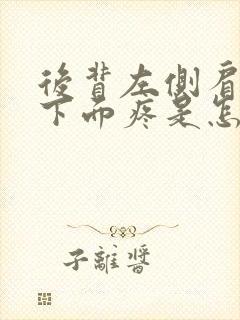 後背左側肩
下面疼是怎
子離醬